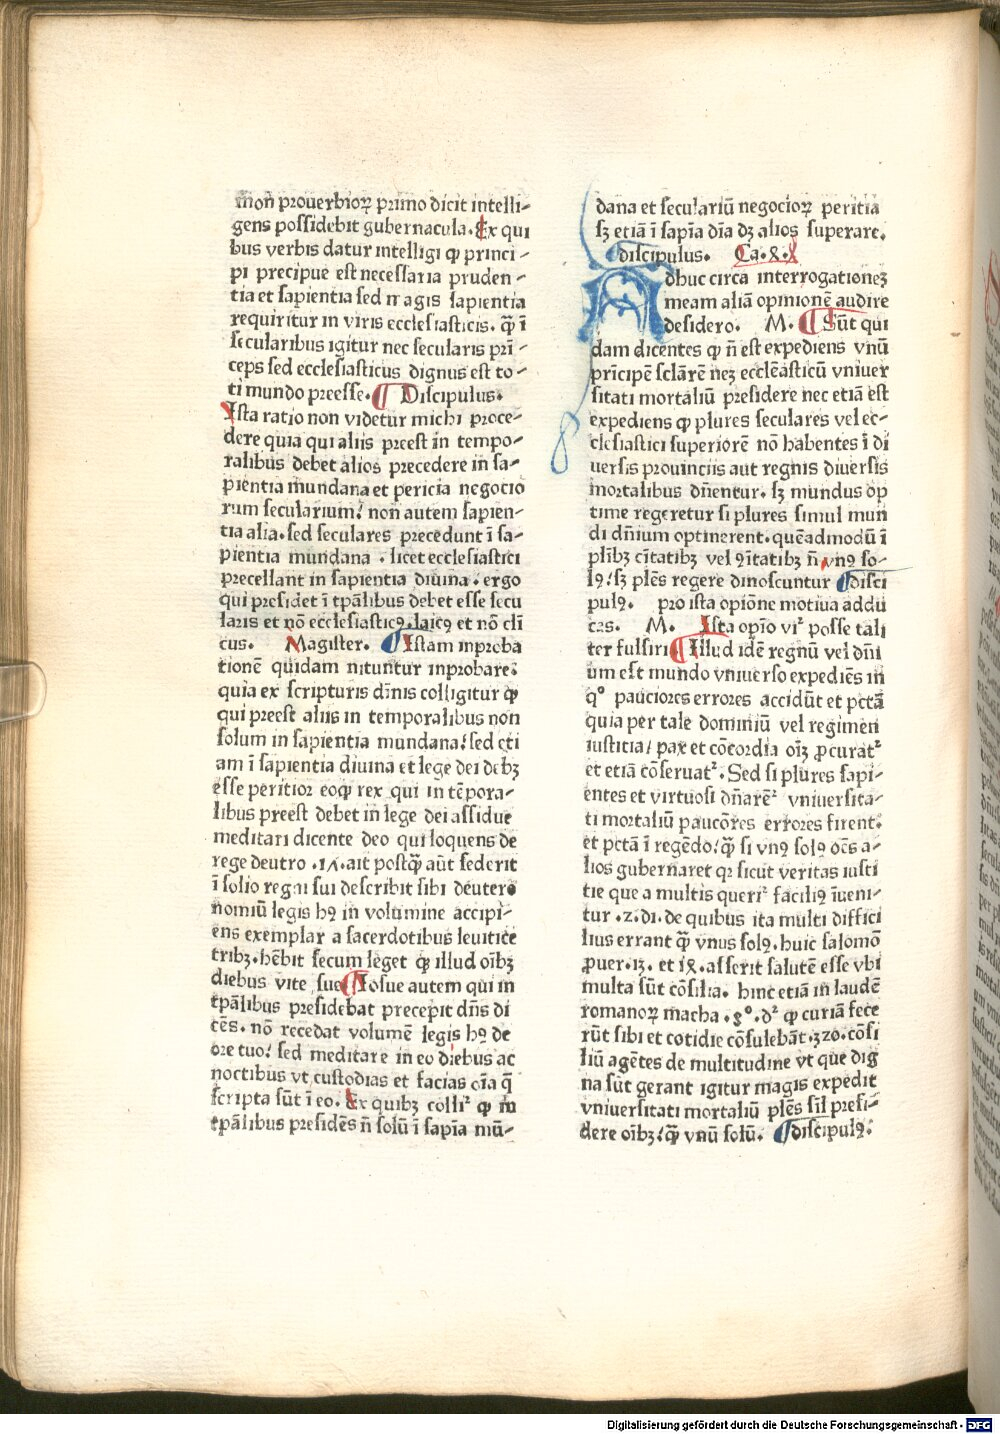 mon̄ prouerbioꝝ primo dicit intelli⸗
gens possidebit gubernacula. Ex qui
bus verbis datur intelligi ꝙ princi⸗
pi precipue est necessaria pruden⸗
tia et sapientia sed magis sapientia
requiritur in viris ecclesiasticis. ꝙ̄ ī
secularibus igitur nec secularis prī⸗
ceps sed ecclesiasticus dignus est to⸗
ti mundo preesse. ¶ Discipulus.
Ista ratio non videtur michi proce⸗
dere quia qui aliis preest in tempo⸗
ralibus debet alios precedere in sa⸗
pientia mundana et pericia negocio
rum secularium? non autem sapien⸗
tia alia. sed seculares precedunt ī sa⸗
pientia mundana . licet ecclesiastici
precellant in sapientia diuina. ergo
qui presidet ī tꝑalibus debet esse secu
laris et nō ecclesiasticꝰ. laicꝰ et nō cli
cus. Magister. ¶ Istam inproba
tionē quidam nituntur inprobare:
quia ex scripturis diuīnis colligitur ꝙ
qui preest aliis in temporalibus non
solum in sapientia mundana? sed eti
am ī sapientia diuina et lege dei debꝫ
esse peritior eoꝙ rex qui in tēpora⸗
libus preest debet in lege dei assidue
meditari dicente deo qui loquens de
rege deutro .17. ait postꝙ̄ aūt sederit
ī solio regni sui describit sibi deutero
nomiū legis hꝰ in volumine accipi⸗
ens exemplar a sacerdotibus leuitice
tribꝫ. hēbit secum leget ꝙ illud oībꝫ
diebus vite sue ¶ Iosue autem qui in
tꝑalibus presidebat precepit dn̄s di
cēs. nō recedat volumē legis hꝰ de
ore tuo? sed meditare in eo diebus ac
noctibus vt custodias et facias oīa q̄
scripta sūt ī eo. Ex quibꝫ colliᵗ ꝙ in
tꝑalibus presidēs n̄ solū ī sapīa mū⸗
dana et seculariū negocioꝝ peritia
sꝫ etiā ī sapīa dīa dꝫ alios superare.
discipulus. Ca. 8. 
Adhuc circa interrogationeꝫ
meam aliā opinionē audire
desidero. M. ¶ Sūt qui
dam dicentes ꝙ n̄ est expediens vnū
prīcipē sclārē neꝫ ecclēasticū vniuer
sitati mortaliū presidere nec etiā est
expediens ꝙ plures seculares vel ec⸗
clesiastici superiorē nō habentes ī di
uersis prouinciis aut regnis diuersis
mortalibus dn̄entur. sꝫ mundus op
time regeretur si plures simul mun
di dn̄ium optinerent. quēadmodū ī
pl̄ibꝫ cītatibꝫ vel ꝯītatibꝫ n̄ vnꝰ so⸗
lꝰ? sꝫ plēs regere dinoscuntur ¶ disci
pulꝰ. pro ista opiōne motiua addu
cas. M. Ista opīo viᵗ posse tali
ter fulsiri ¶ Illud idē regnū vel dn̄i
um est mundo vniuerso expediēs in
qº pauciores errores accidūt et pctā
quia per tale dominiū vel regimen
iusticia/ pax et cōcordia oīꝫ ꝓcuratᵗ
et etiā cōseruatᵗ. Sed si plures sapi⸗
entes et virtuosi dn̄arēᵗ vniuersita⸗
ti mortaliū pauciōres errores fierent:
et pctā ī regēdo? ꝙ̄ si vnꝰ solꝰ oēs a⸗
lios gubernaret qꝛ sicut veritas iusti
tie que a multis queriᵗ faciliꝰ īueni⸗
tur .z. di. de quibus ita multi diffici
lius errant ꝙ̄ vnus solꝰ. huic salomō
ꝓuer. iꝫ. et iꝝ. asserit salutē esse vbi
multa sūt cōsilia. hinc etiā in laudē
romanoꝝ macha .8º. dᵗ ꝙ curiā fece
rūt sibi et cotidie cōsulebāt .320. cōsi
liū agētes de multitudine vt que dig
na sūt gerant igitur magis expedit
vniuersitati mortaliū plēs sīl presi⸗
dere oībꝫ? ꝙ̄ vnū solū. ¶ discipulꝰ:
Digitalisierung gefördert durch die Deutsche Forschungsgemeinschaft - DFG